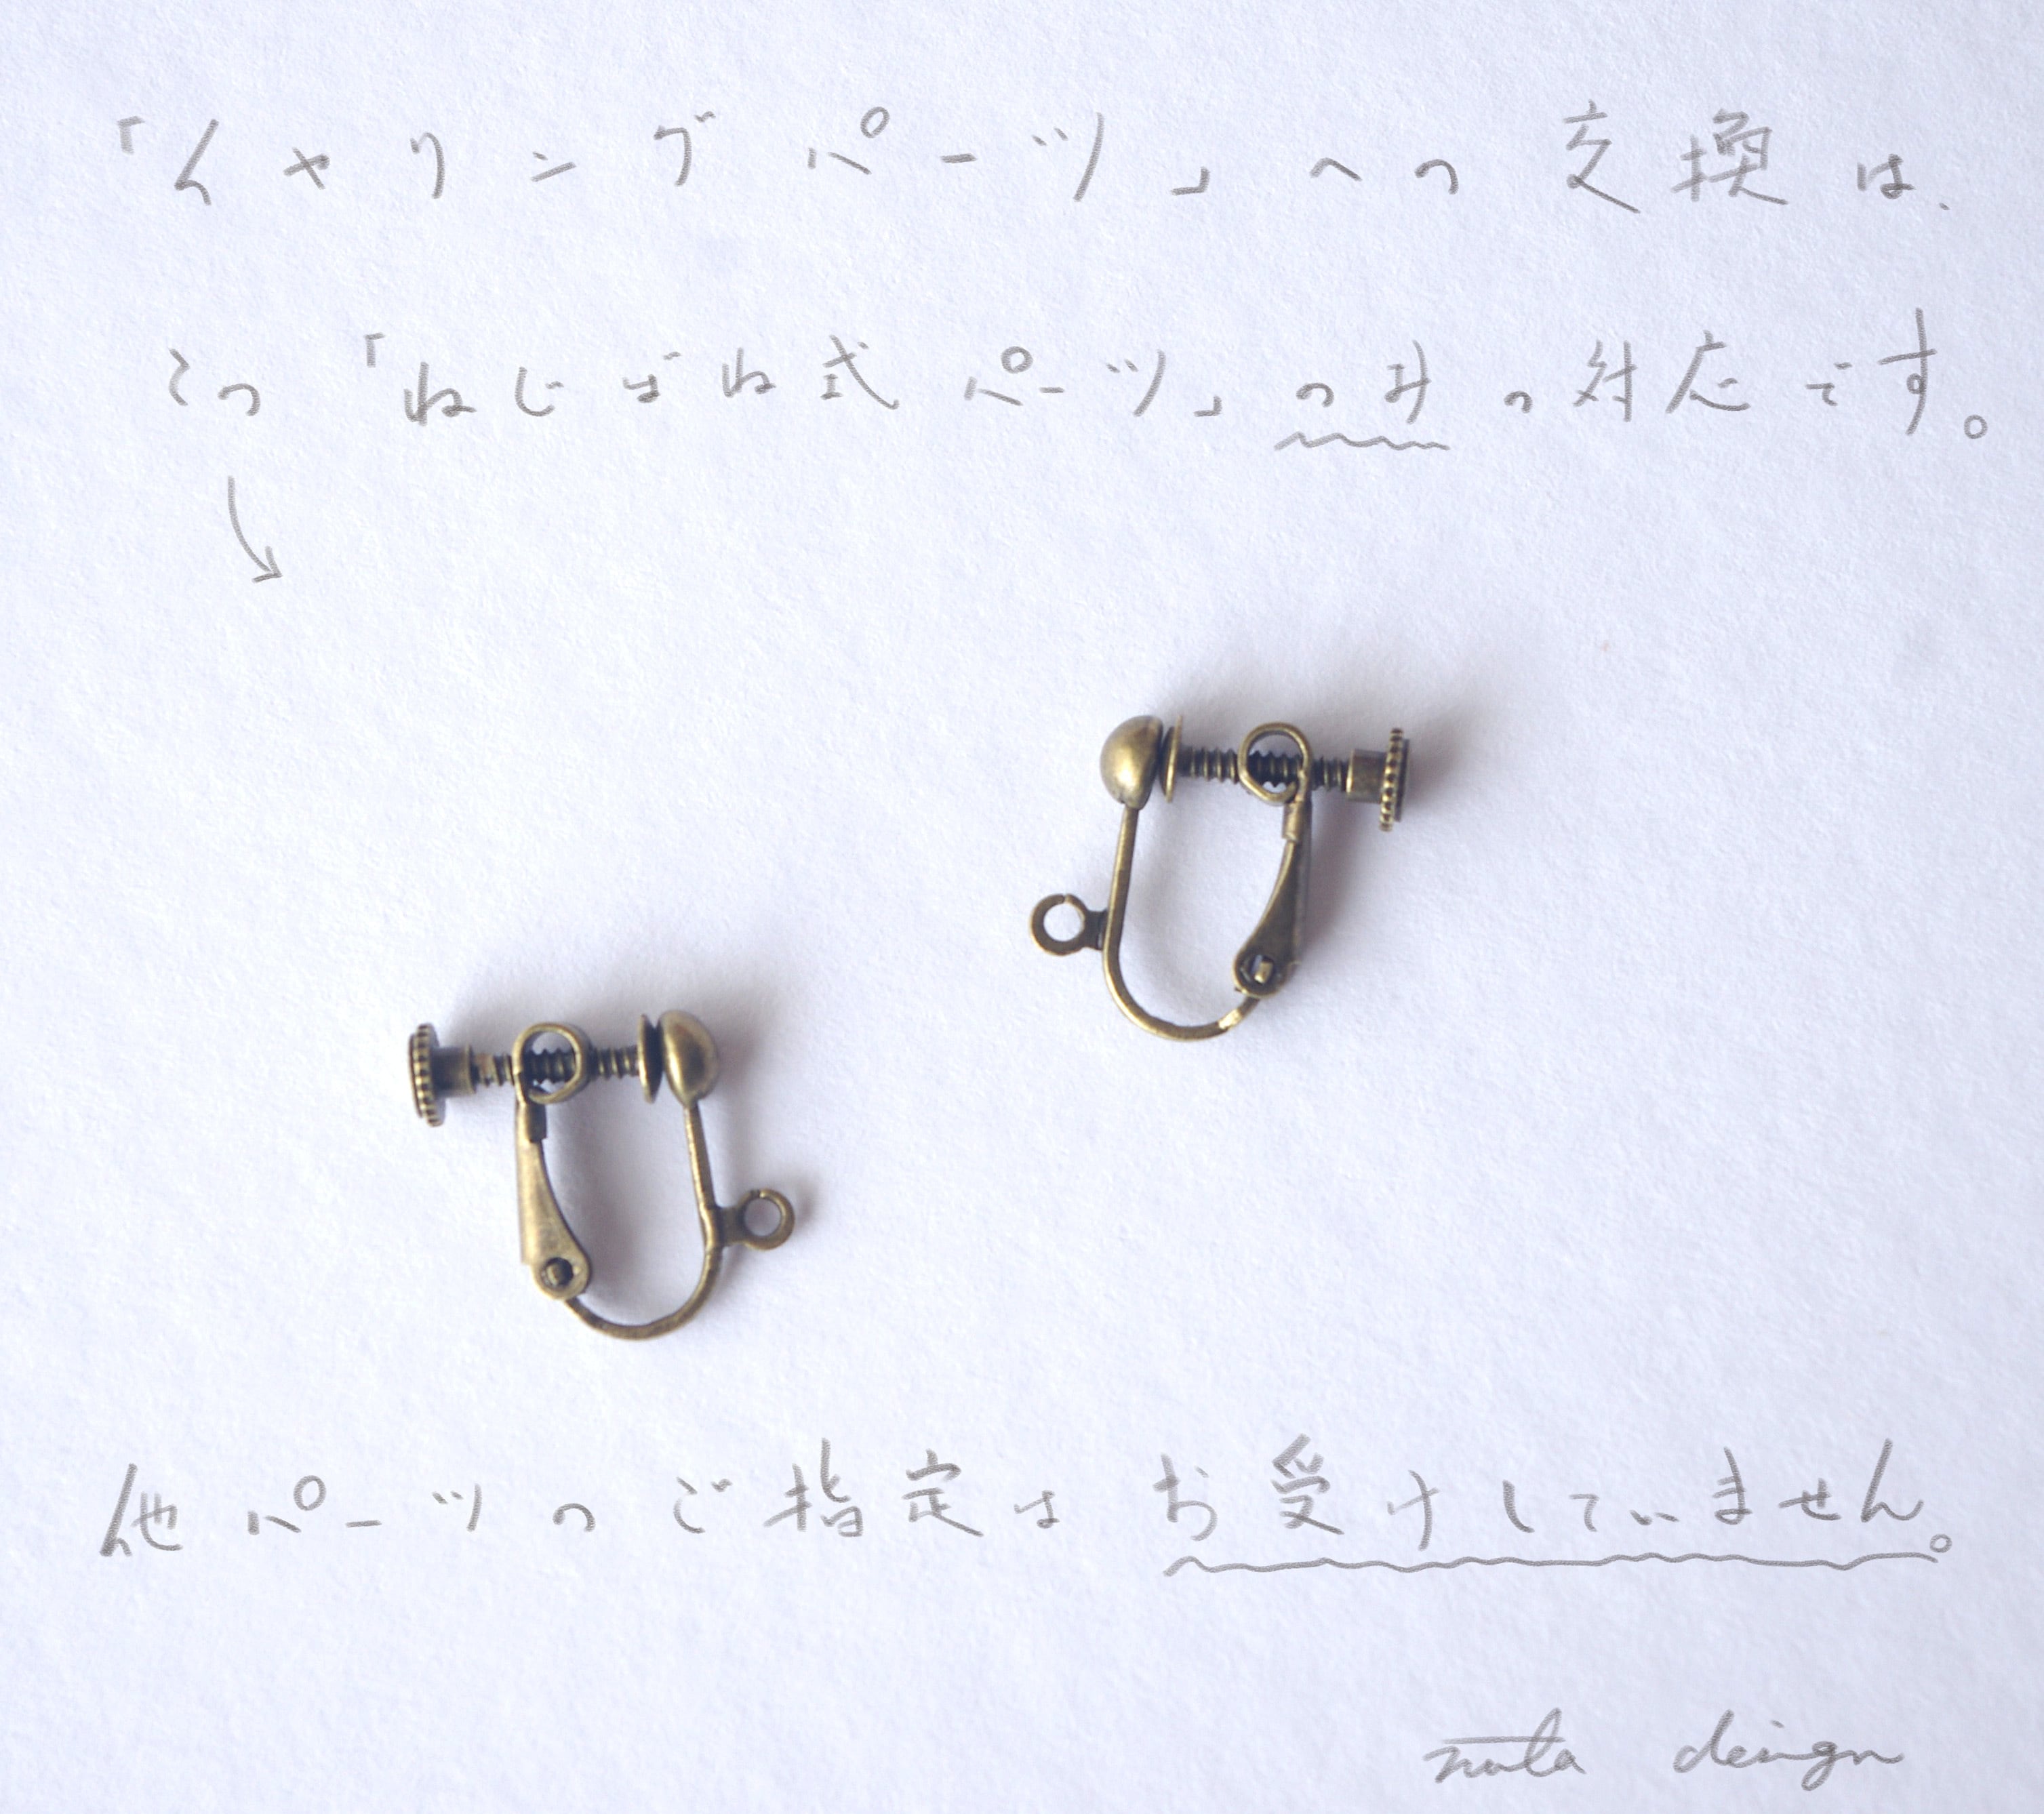 「イヤリングパーツ」への交換は、
この「ねじばね式パーツ」のみの対応です。
他パーツのご指定はお受けしていません。
nuta design